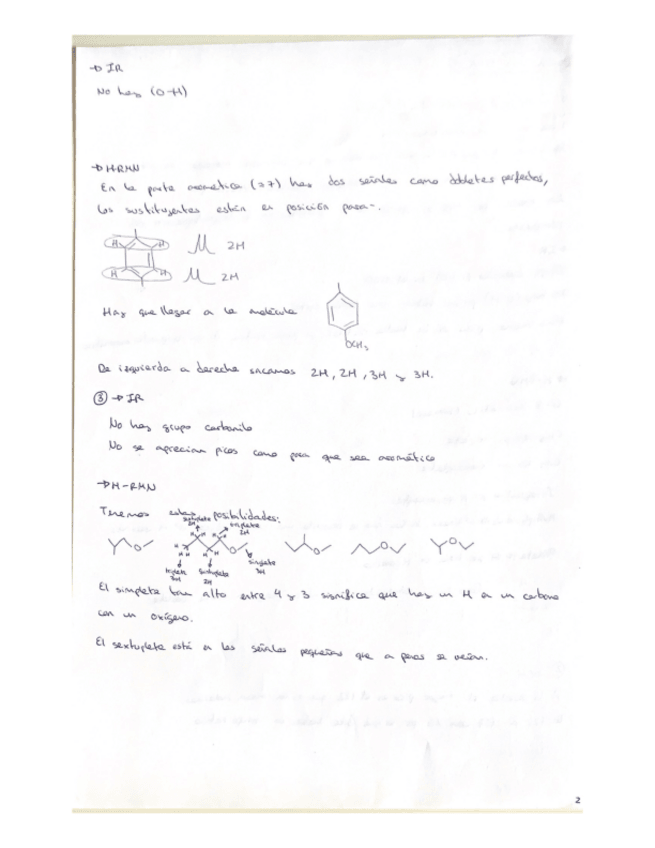 → IR
No hay (O-H)
→ H-RMN
En la parte aromática (≥7) hay dos señales como dobletes perfectos,
los sustituyentes están en posición para-.
H H 2H
H H 2H
Hay que llegar a la molécula
OCH3
De izquierda a derecha sacamos 2H, 2H, 3H y 3H.
③ → IR
No hay grupo carbonilo
No se aprecian picos como para que sea aromático
→ H-RMN
Tenemos estas posibilidades:
sextuplete 2H triplete 2H
triplete 3H sextuplete 2H singlete 3H
El simplete tan alto entre 4 y 3 significa que hay un H en un carbono
con un oxígeno.
El sextuplete está a las señales pequeñas que a penas se veían.
2